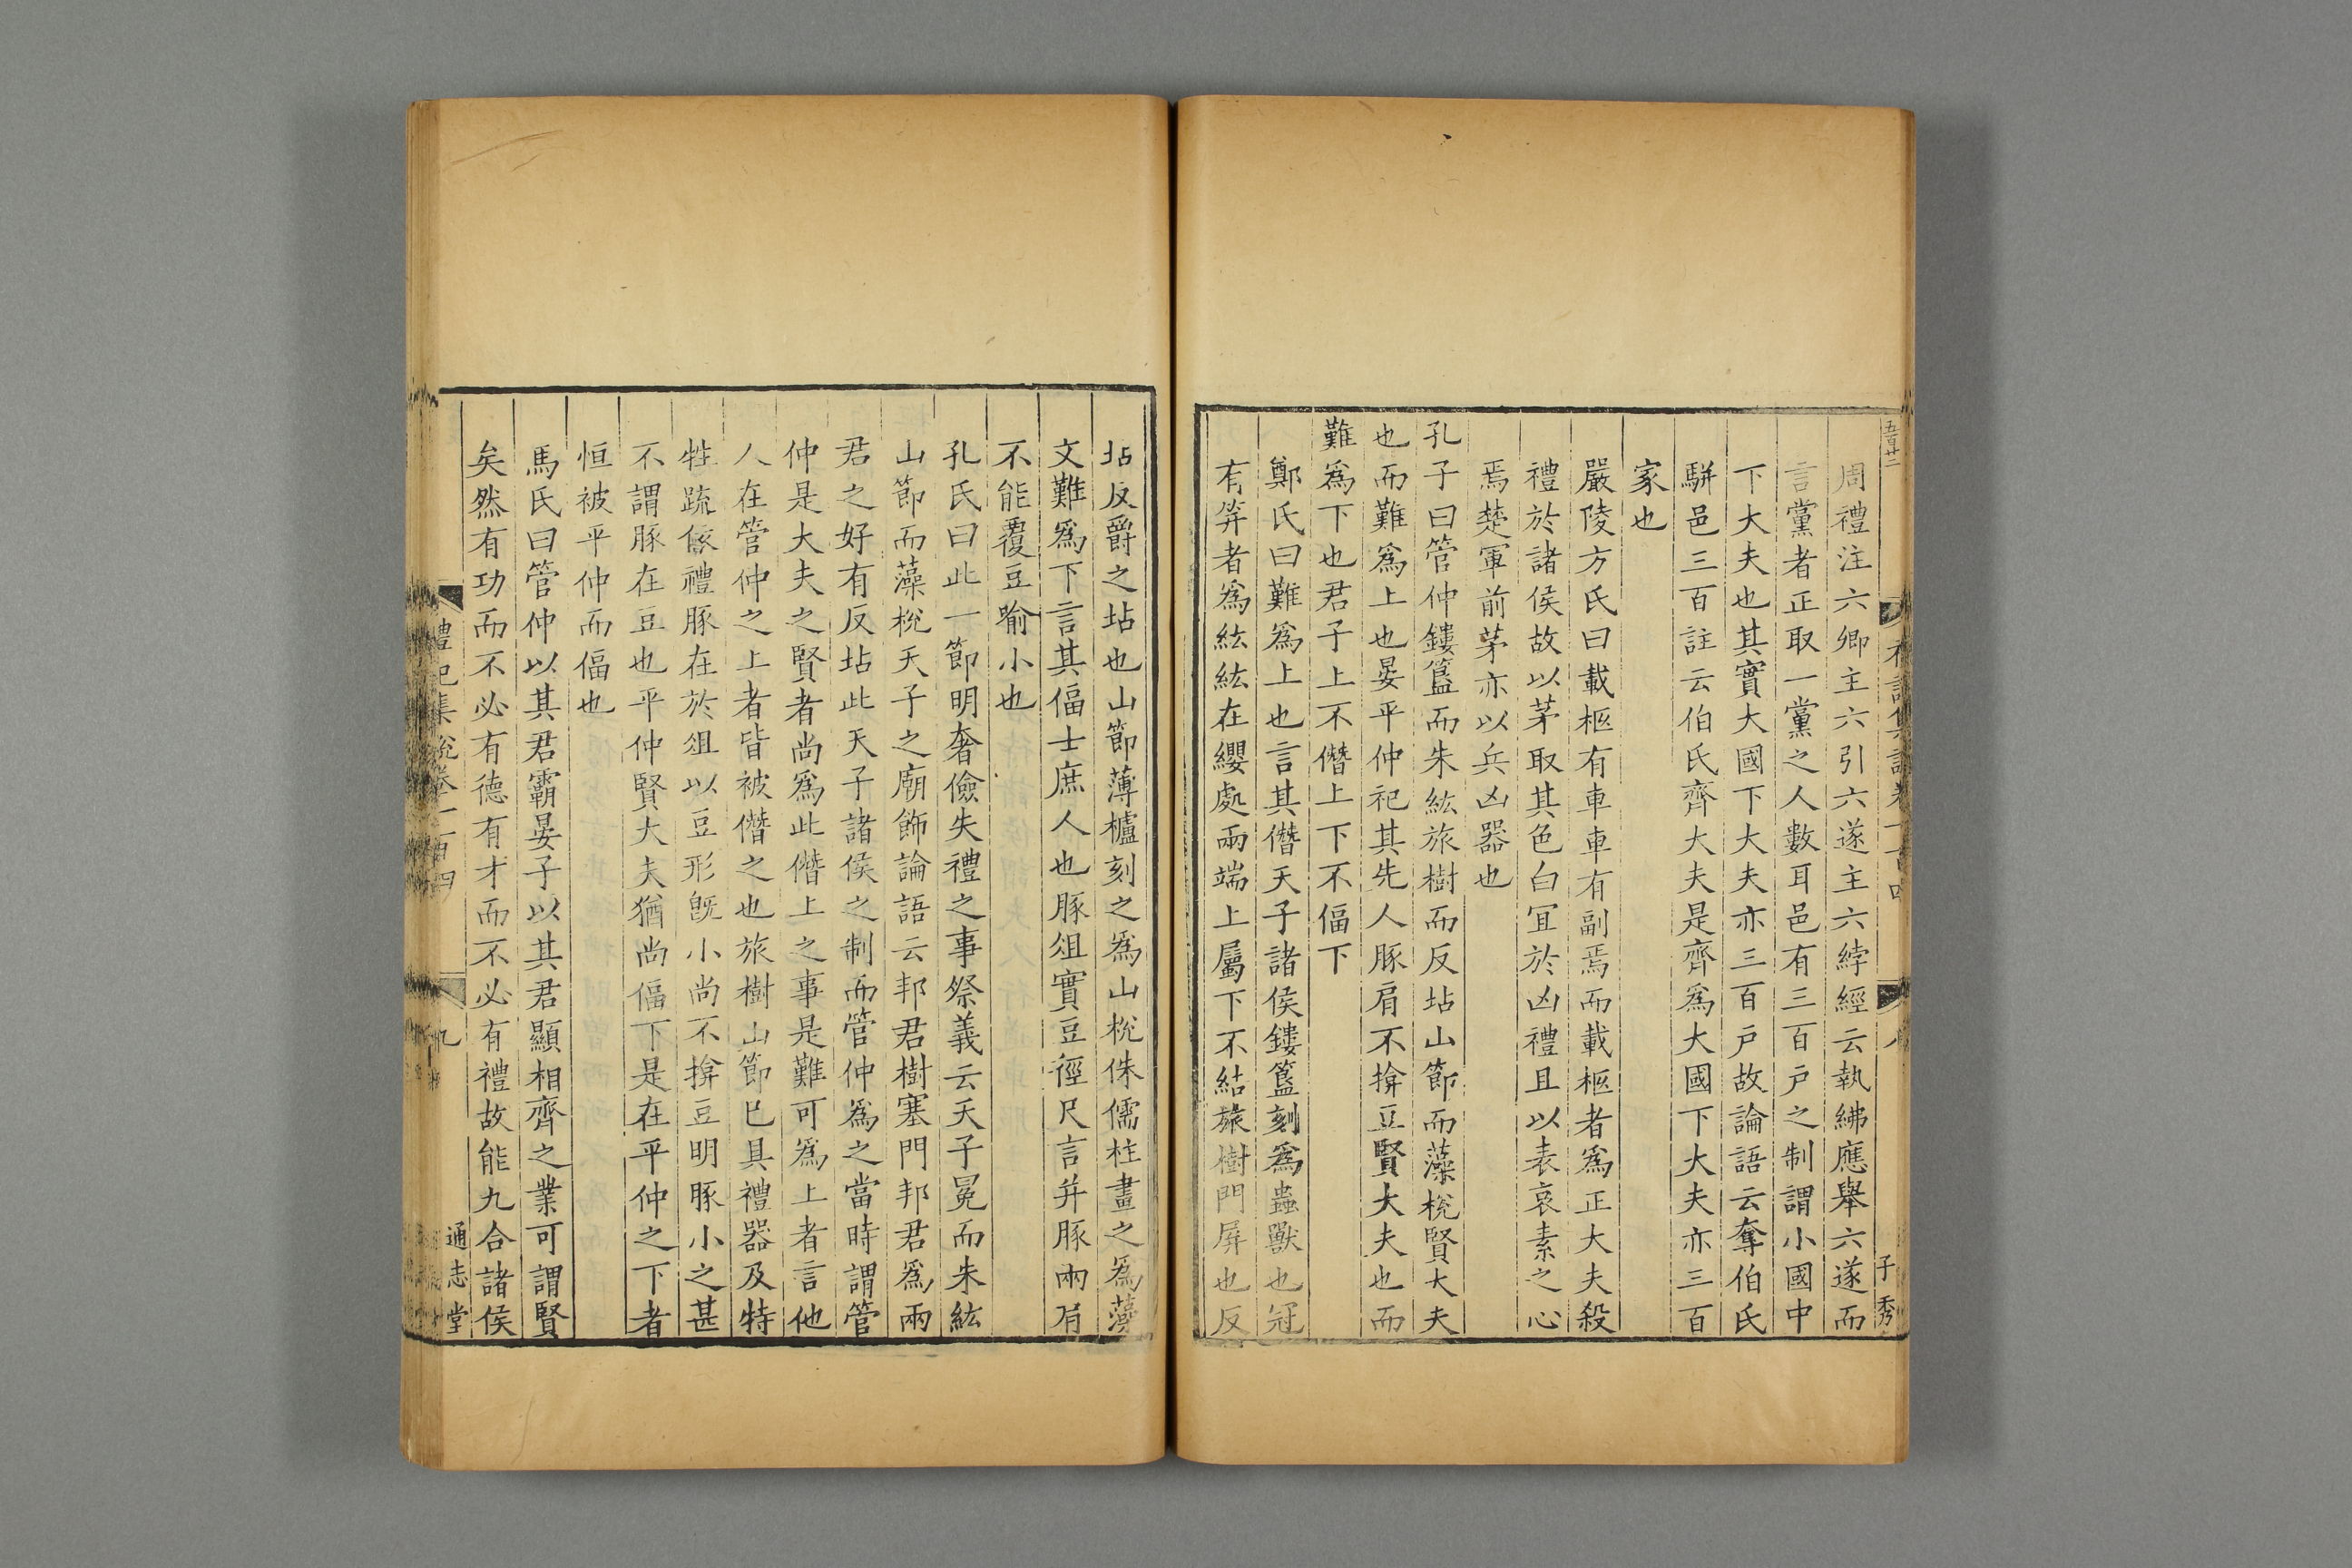 五百廿二
禮記集說卷一百四
八
子秀
周禮注六卿主六引六遂主六綍經云執紼應舉六遂而
言黨者正取一黨之人數耳邑有三百戶之制謂小國中
下大夫也其實大國下大夫亦三百戶故論語云奪伯氏
駢邑三百註云伯氏齊大夫是齊爲大國下大夫亦三百
家也
嚴陵方氏曰載柩有車車有副焉而載柩者爲正大夫殺
禮於諸侯故以茅取其色白冝於凶禮且以表哀素之心
焉楚軍前茅亦以兵凶器也
孔子曰管仲鏤簋而朱紘旅樹而反坫山節而藻梲賢大夫
也而難爲上也晏平仲祀其先人豚肩不揜豆賢大夫也而
難爲下也君子上不僭上下不偪下
鄭氏曰難爲上也言其僭天子諸侯鏤簋刻爲蟲獸也冠
有笄者爲紘紘在纓處兩端上屬下不結旅樹門屏也反
坫反爵之坫也山節薄櫨刻之爲山梲侏儒柱畫之爲藻
文難爲下言其偪士庶人也豚俎實豆徑尺言并豚兩肩
不能覆豆喻小也
孔氏曰此一節明奢儉失禮之事祭義云天子冕而朱紘
山節而藻梲天子之廟飾論語云邦君樹塞門邦君爲兩
君之好有反坫此天子諸侯之制而管仲爲之當時謂管
仲是大夫之賢者尚爲此僭上之事是難可爲上者言他
人在管仲之上者皆被僭之也旅樹山節已具禮器及特
牲疏依禮豚在於俎以豆形旣小尚不揜豆明豚小之甚
不謂豚在豆也平仲賢大夫猶尚偪下是在平仲之下者
恒被平仲而偪也
馬氏曰管仲以其君霸晏子以其君顯相齊之業可謂賢
矣然有功而不必有德有才而不必有禮故能九合諸侯
禮記集說卷一百四
九
通志堂